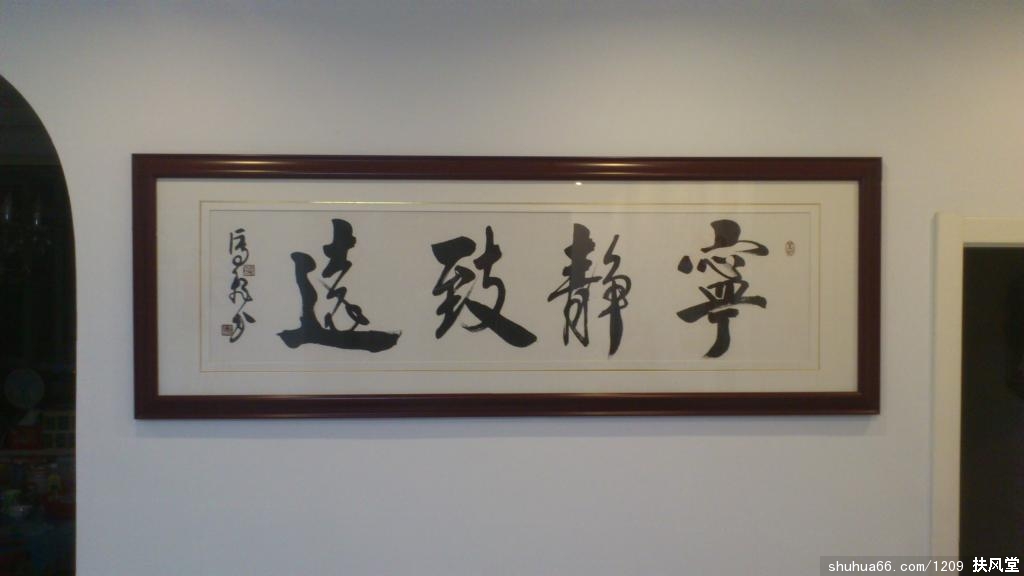 寧靜致遠
shuhua66.com/1209 扶风堂